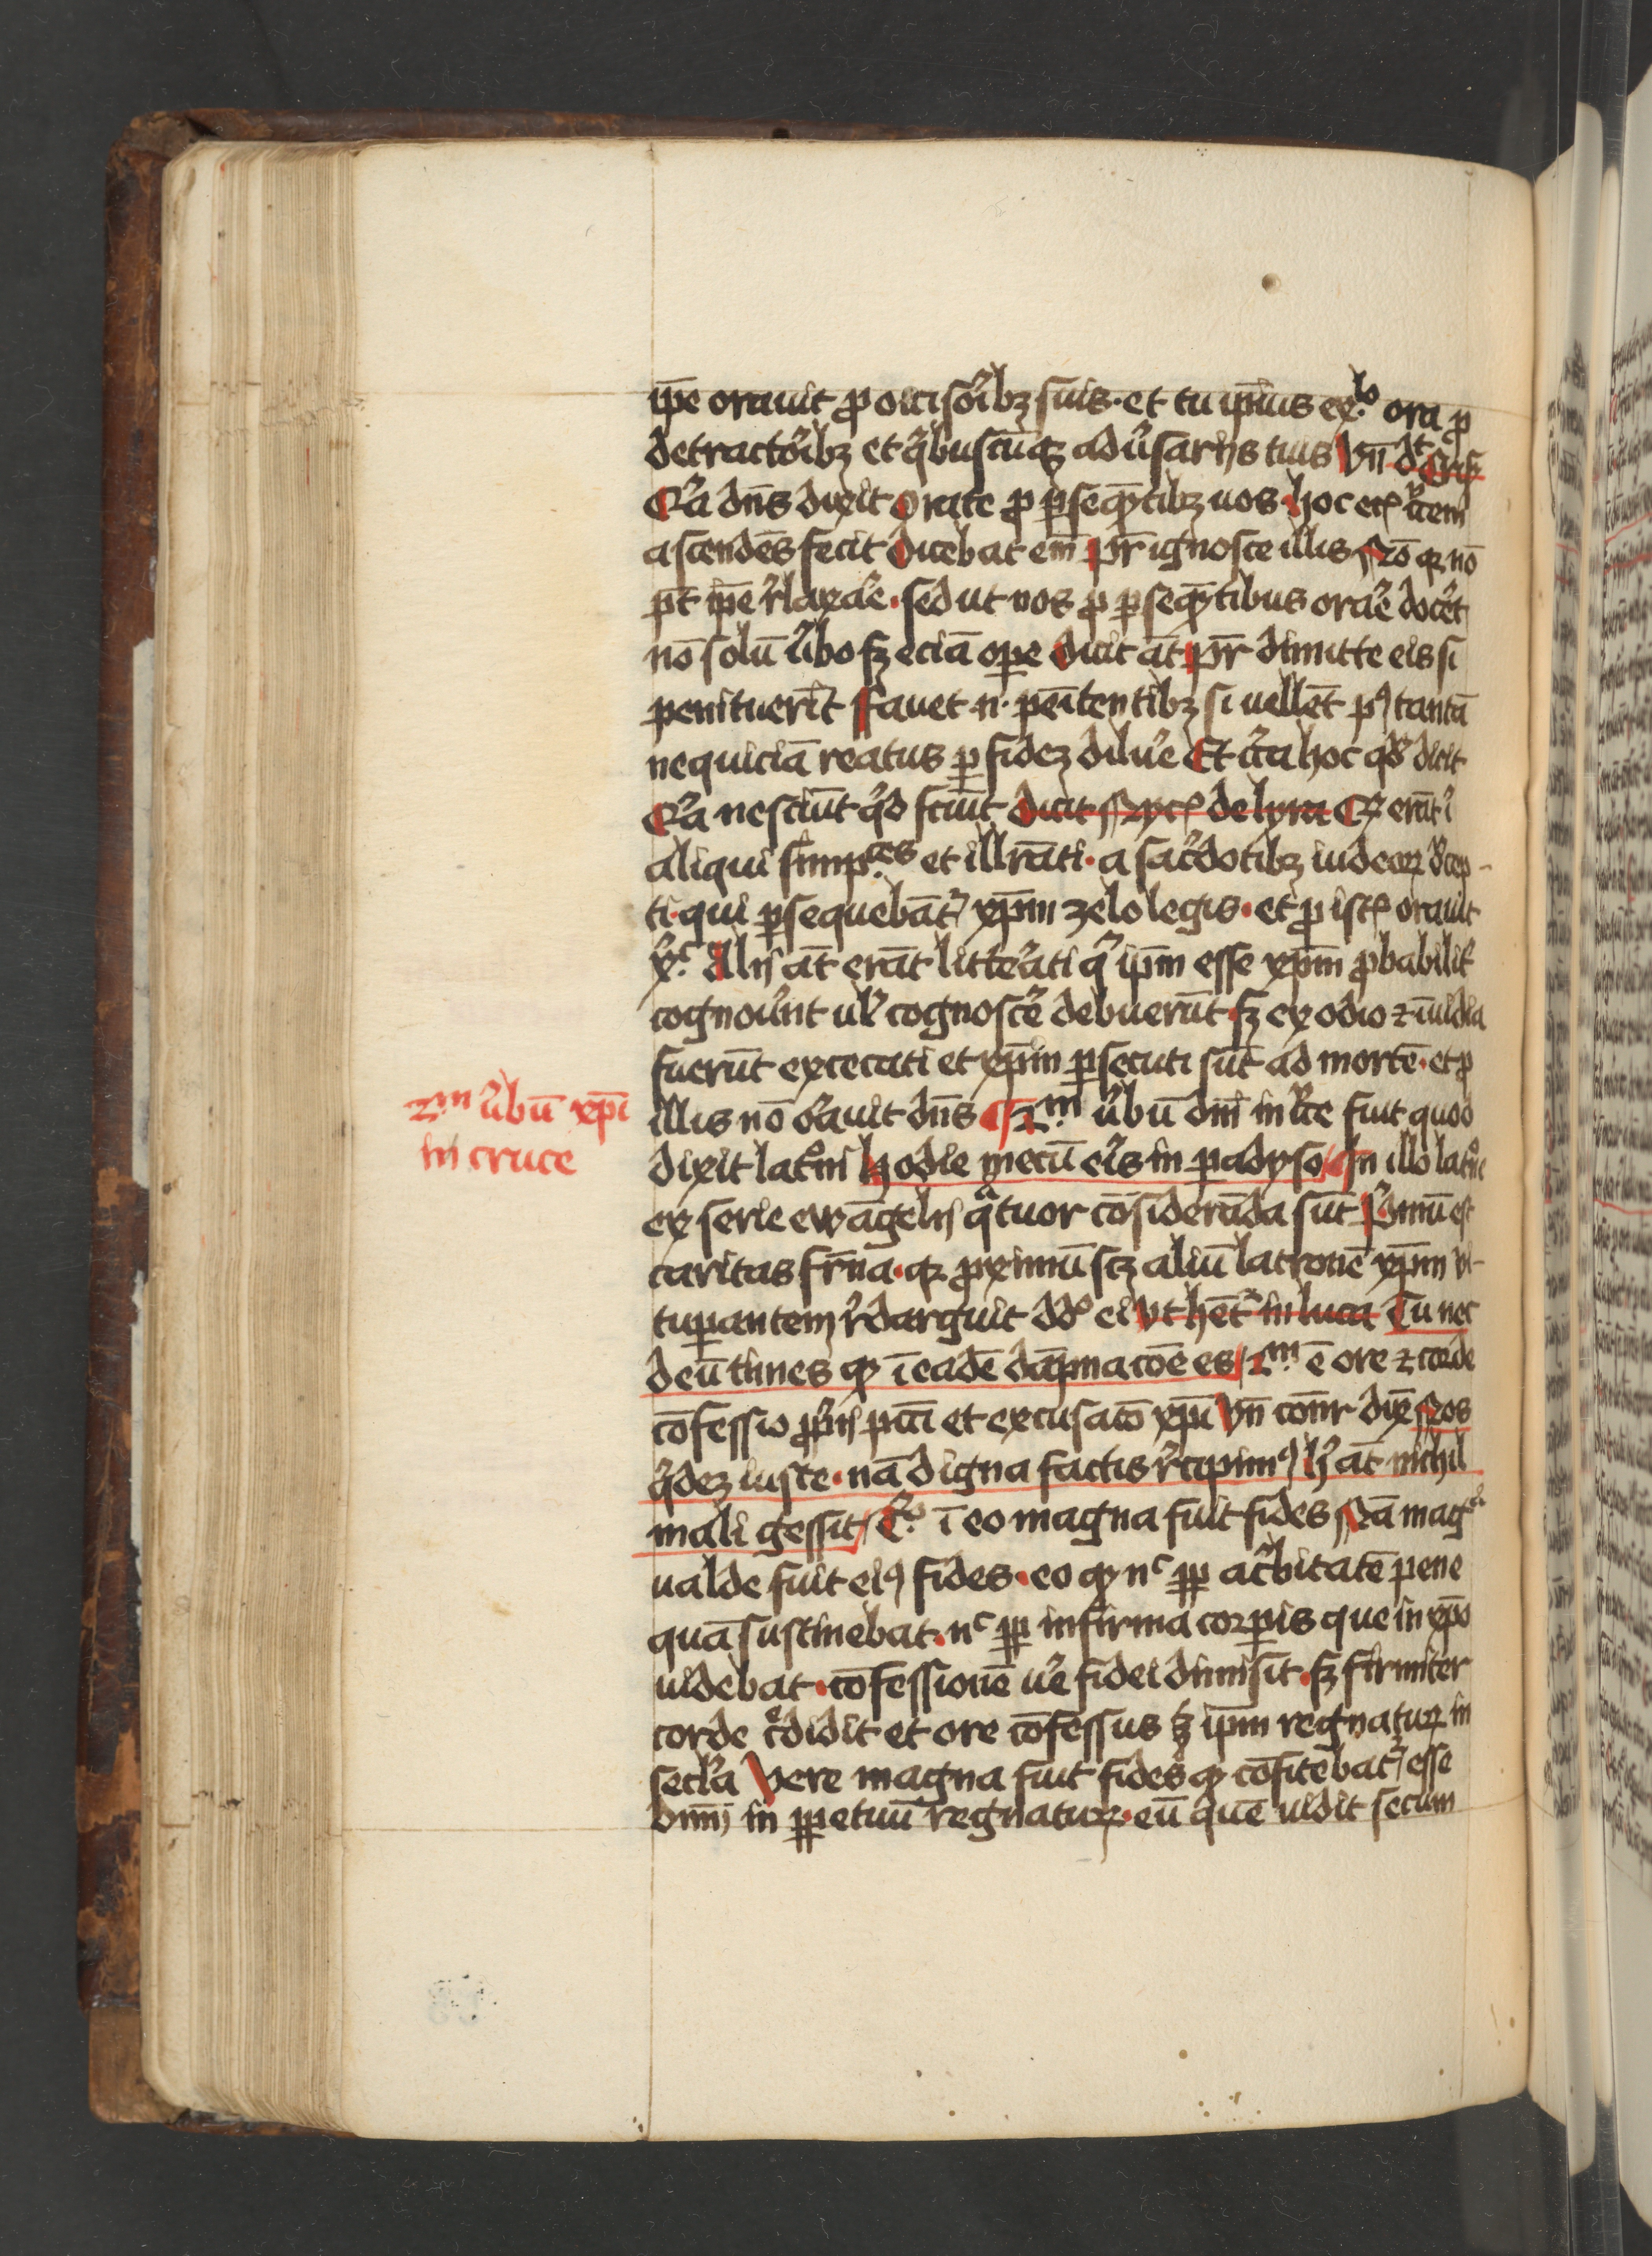 ip̄e orauit ꝓ occisoribꝫ suis · et tu ip̄ius exͦ ora ꝓ
detractoribꝫ et qͥbuscūqꝫ aduͥsarijs tuis Vn̄ dt
Qͥa dn̄s dixit Orate ꝓ ꝑseqn̄tibꝫ uos · hoc
ascendēs fecit Dicebat em̄ pr̄ ignosce illis Nō qꝛ nō
pt̄ ip̄e rͥlaxare · sed ut nos ꝓ ꝑseqn̄tibus orare docet
nō solū uͥbo sꝫ eciā oꝑe Dicit āt pr̄ dimitte eis si
penituerīt Fauet · n · penitentibꝫ si uellēt pꝰ tantā
nequiciā reatus ꝑ fidez diluͥe Et cͥca hoc qd̄ dicit
Qͥa nesciūt qͥd fciūt Dicit Nycꝭ de lyra Qꝫ erāt ī
aliqui simpᶜᵉˢ et illrāti · a sac̄dotibꝫ iudeoꝝ decep-
ti · qui ꝑsequebāt̉ xp̄m zelo legis · et ꝓ istꝭ orauit
xᶜ Alij āt erāt litterati qͥ ip̄m esse xp̄m ꝓbabilit̉
cognouͥnt ul̉ cognosce᷑ debuerūt · sꝫ ex odio ⁊ īuidia
fuerūt excecati et xp̄m ꝑsecuti sūt ad mortē · et ꝓ
illis nō orauit dn̄s 2ᵐ uͥbū dn̄i in cͥce fuit quod
dixit latͦni hodie mecū eris in paradyso In illo latͦne
ex serie ewāgelij qͣtuor cōsiderāda sūt Pͥmū est
caritas fr̄na · qꝛ ꝓximū scꝫ aliū latronē xp̄m vi-
tuꝑantem rͥdarguit dd̄ ei vt hēt̉ in luca Tu nec
deū times qꝫ ī eadē dāpnacōe es 2ᵐ ē ore ⁊ corde
cōfessio ꝓpͥij pcc̄i et excusacō xp̄i Vn̄ Nos
qͥdez iuste · nā digna factis rͥcipimꝰ hͥ āt nichil
mali gessit ī eo magna fuit fides Nā magᵃ
ualde fuit eiꝰ fides · eo qꝫ nᶜ ꝓp acͥbitatē pene
quā sustinebat · nᶜ ꝓp infirma corꝑis que in xp̄o
uidebat · cōfessionē ue᷑ fidei dimisit · sꝫ firmiter
corde cͥdidit et ore cōfessus ip̄m regnatuꝝ in
secl̉a Vere magna fuit fides qꝫ cōfitebat̉ esse
dn̄m in ꝑpetuū regnatuꝝ · eū quē uidit secum
2ᵐ uͥbū xp̄i
in cruce